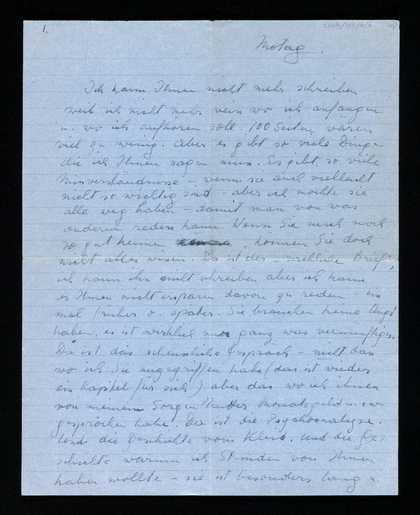 1.
Motag.
Ich kann Ihnen nicht mehr schreiben
weil ich nicht mehr weis wo ich anfangen
u. wo ich aufhören soll. 100 Seiten wären
viel zu wenig. Aber es gibt so viele Dinge
die ich Ihnen sagen muss. Es gibt so viele
Missverständnisse – wenn sie auch vielleicht
nicht so wichtig sind – aber ich möchte sie
alle weg haben – damit man von was
anderem reden kann. Wenn Sie mich noch
so gut kennen, können Sie doch
nicht alles wissen. Da ist der Brief,
ich kann ihn nicht schreiben aber ich kann
es Ihnen nicht ersparen davon zu reden – ein
mal früher o. später. Sie brauchen keine Angst
haben, es ist wirklich ganz was vernünftiges.
Da ist das scheussliche Gespräch – nicht das
wo ich Sie angegriffen habe (das ist wieder
ein Kapitel für sich) aber das wo ich Ihnen
von meinen Sorgen
gesprochen habe. Da ist die Psychoanalyse.
Und die vom Kleid. Und die Ge-
schichte warum ich Stunden von Ihnen
haben wollte – sie ist besonders lang u.